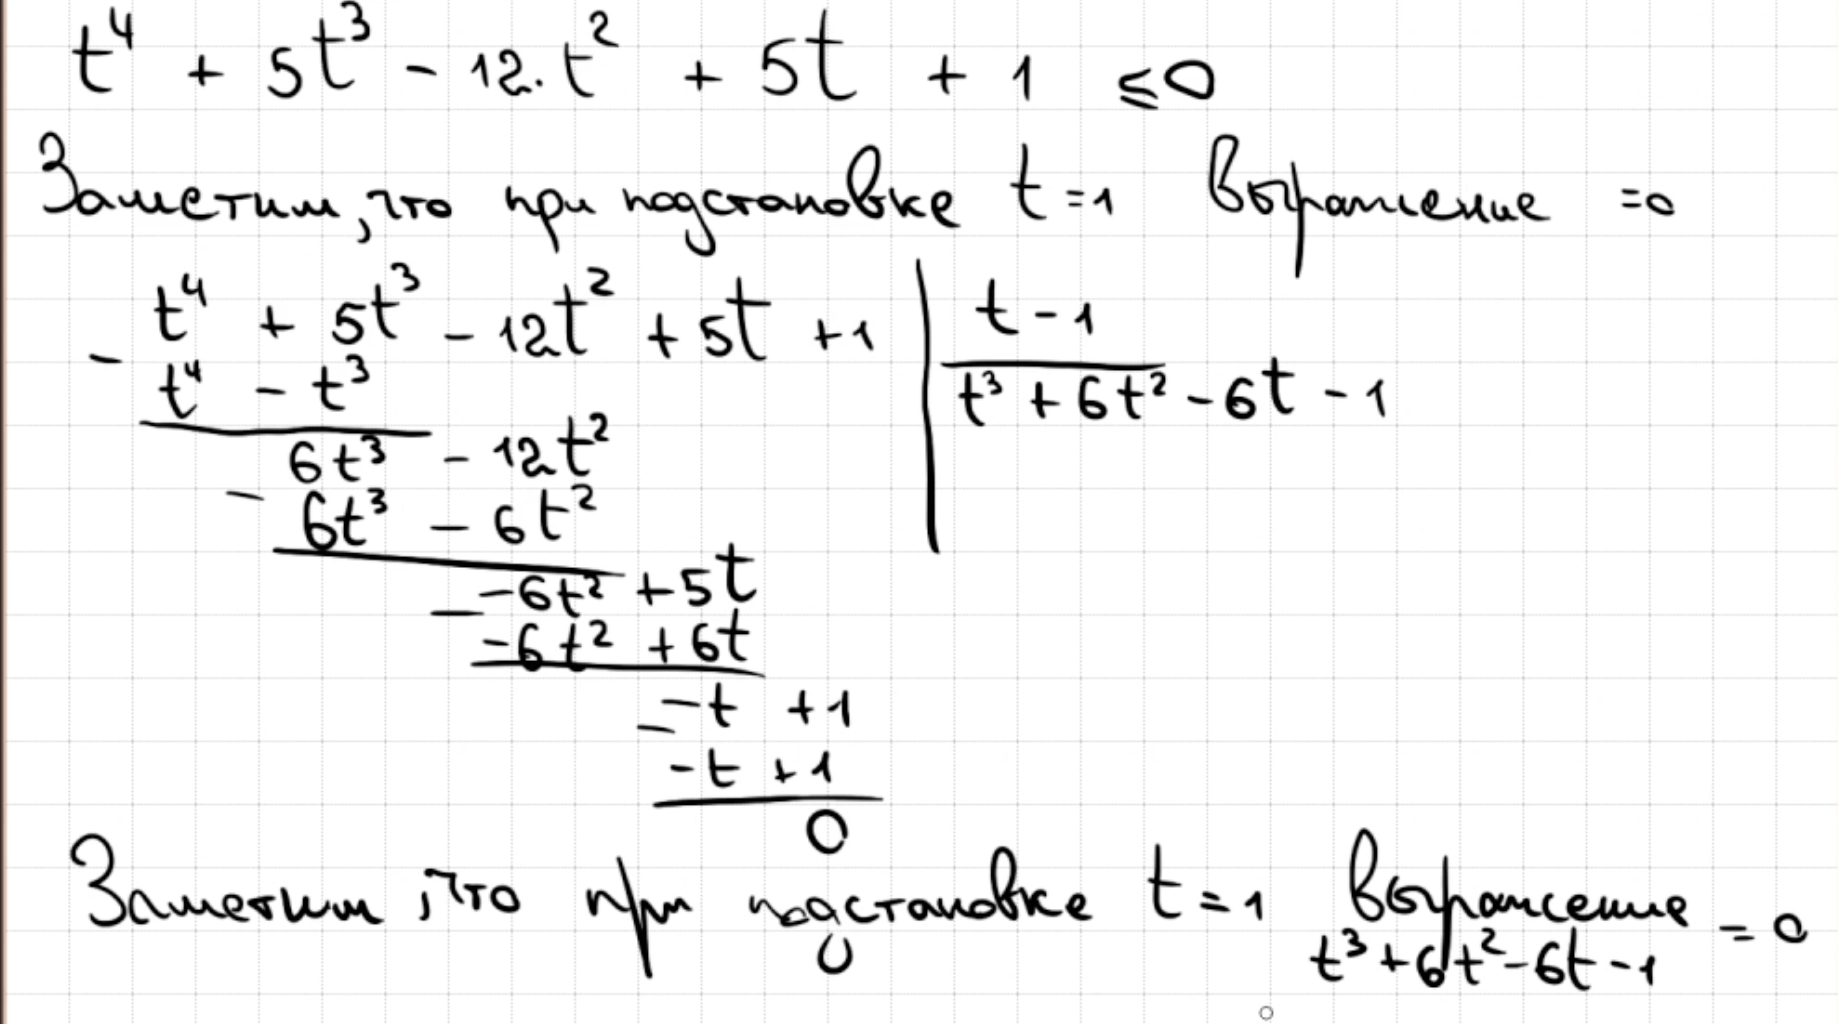 t⁴ + 5t³ - 12·t² + 5t + 1 ≤ 0
Заметим, что при подстановке t=1 выражение =0
t⁴ + 5t³ - 12t² + 5t + 1 | t - 1
- t⁴ - t³ | t³ + 6t² - 6t - 1
6t³ - 12t²
- 6t³ - 6t²
-6t² + 5t
- -6t² + 6t
-t + 1
- -t + 1
0
Заметим, что при подстановке t=1 выражение = 0
t³ + 6t² - 6t - 1